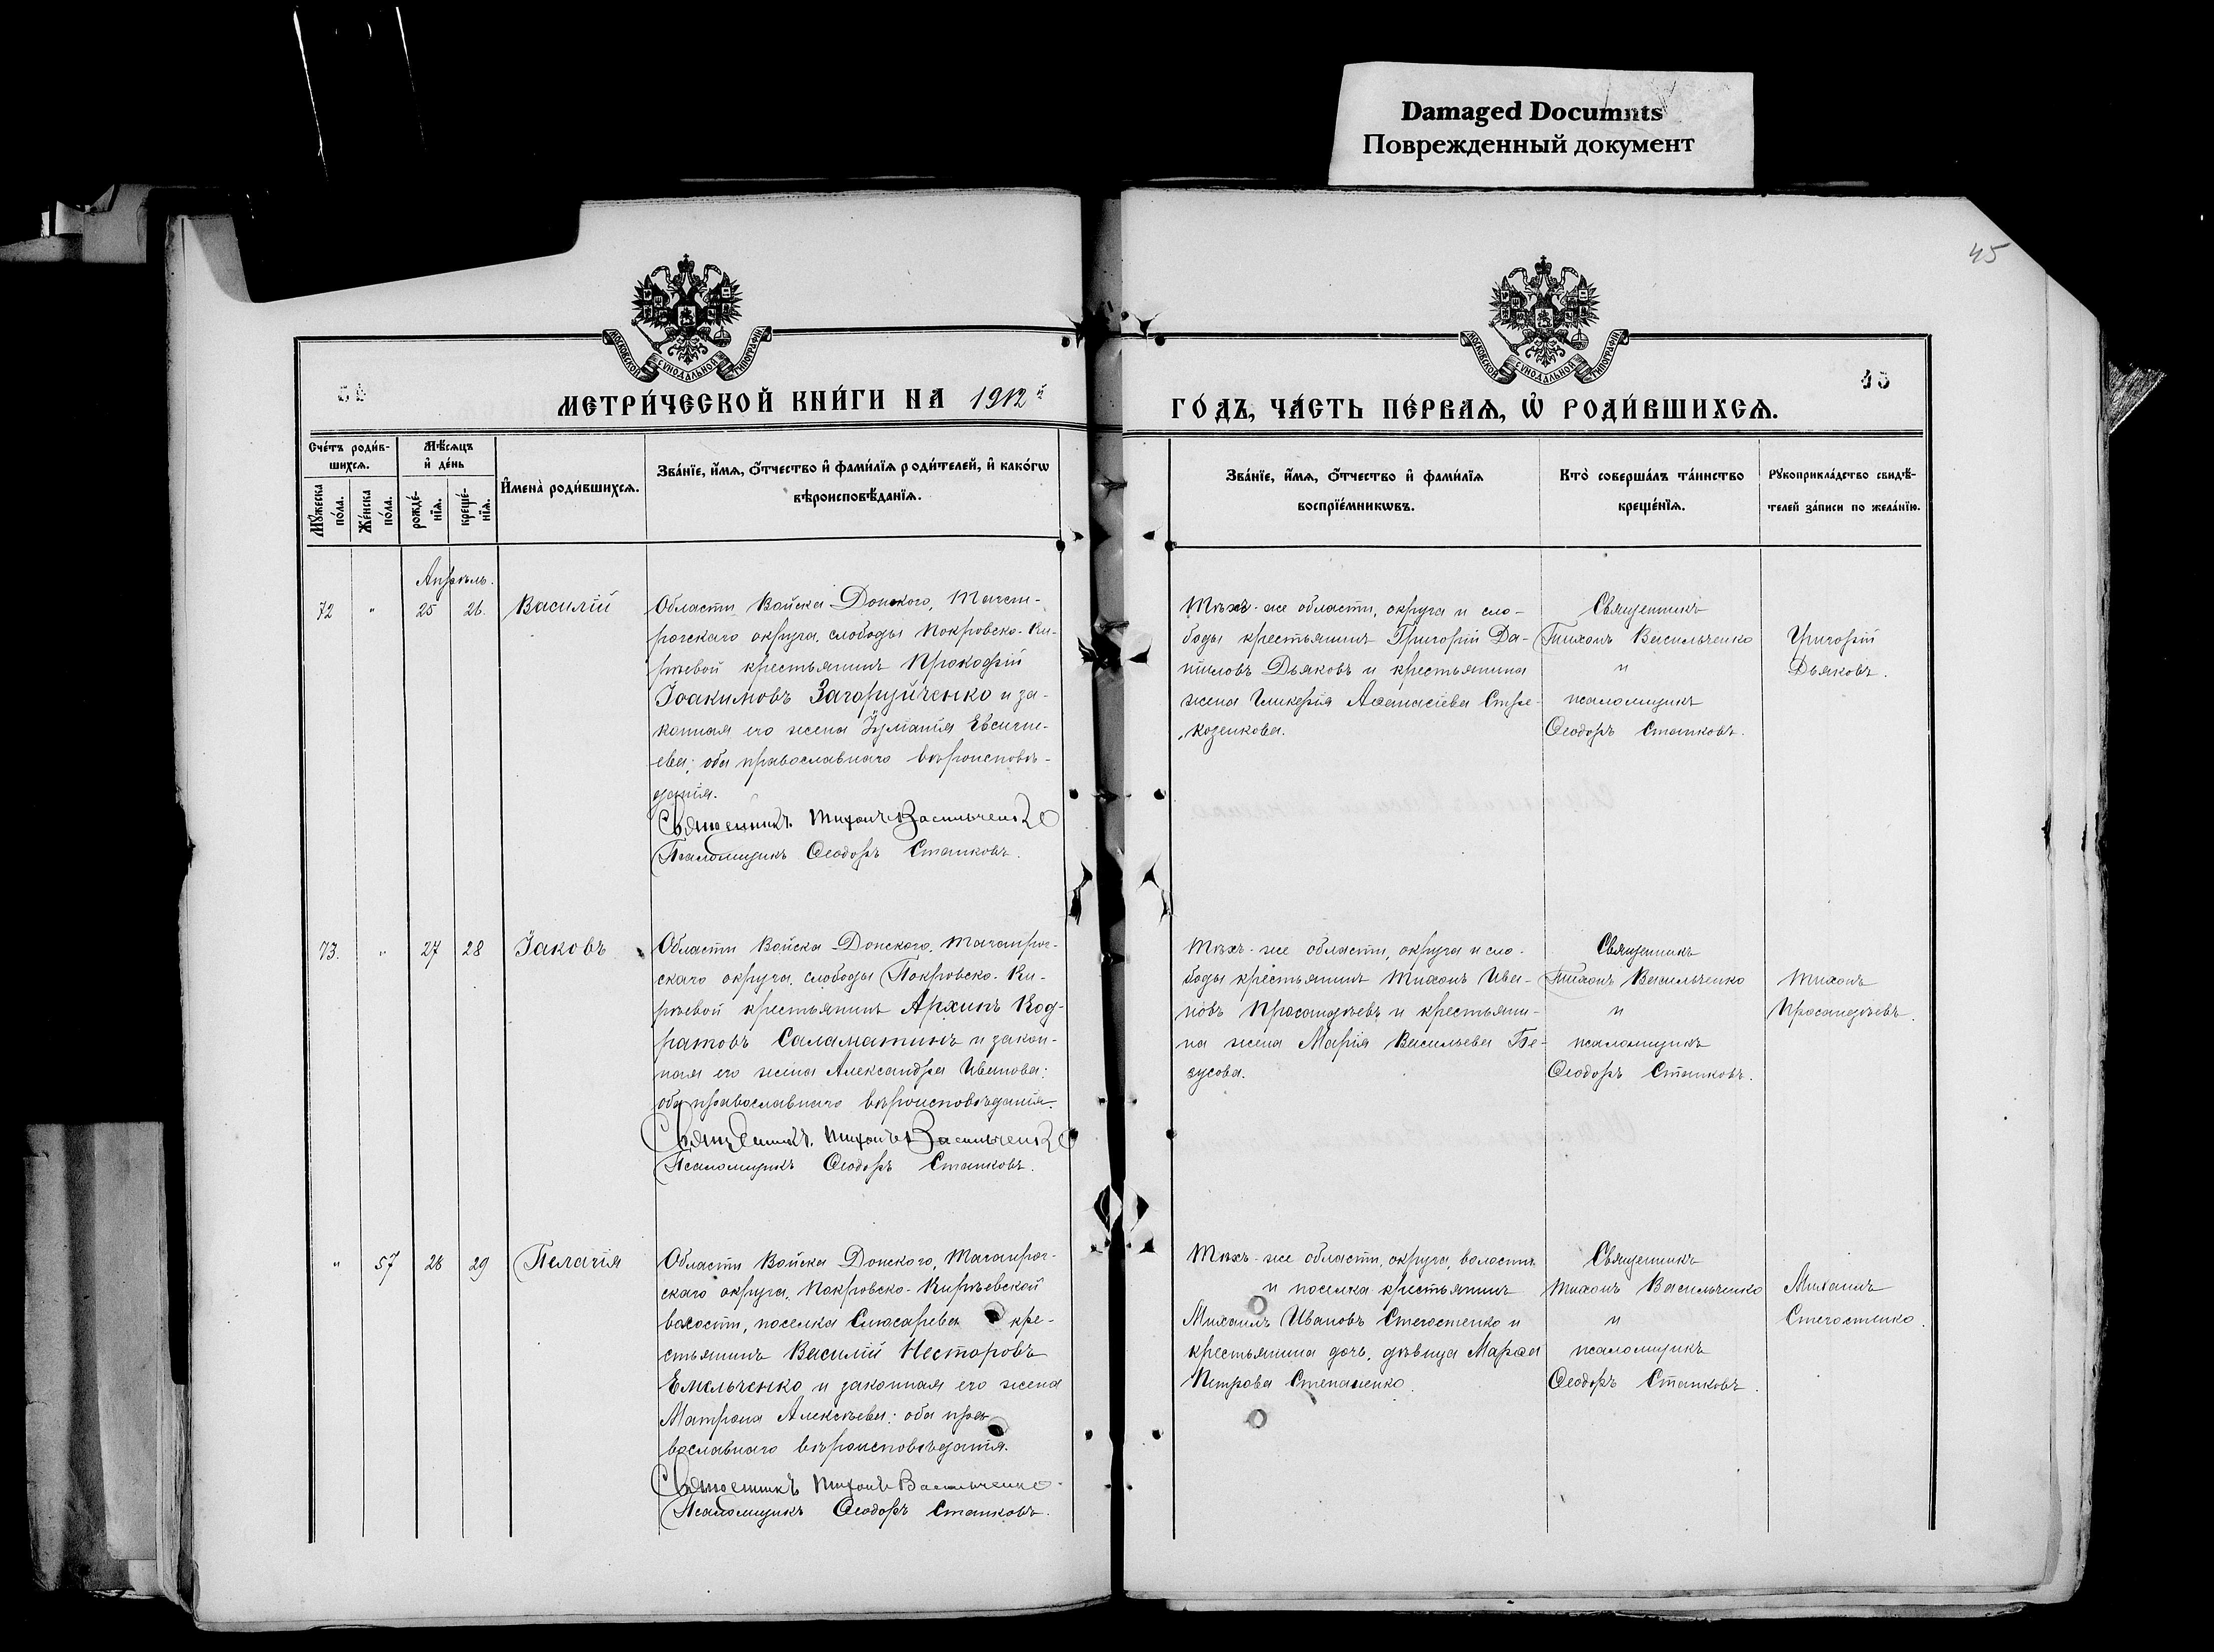 Damaged Documnts
Поврежденный документ
45
МОСКОВСКОЙ СѴНОДАЛЬНОЙ ТИПОГРАФІИ
МОСКОВСКОЙ СѴНОДАЛЬНОЙ ТИПОГРАФІИ
45
МЕТРИ́ЧЕСКОЙ КНИ́ГИ НА 1912й
ГО́ДЪ, ЧА́СТЬ ПЕ́РВАѦ, Ѡ҆ РОДИ́ВШИХСѦ.
Сче́тъ роди́в-
шихсѧ.
Мꙋ́жеска
по́ла.
Же́нска
по́ла.
Мѣ́сѧцъ
и҆ де́нь
рожде́-
нїѧ.
креще́-
нїѧ.
И҆мена̀ роди́вшихсѧ.
Зва́нїе, и҆́мѧ, ѻ҆́тчество и҆ фами́лїѧ роди́телей, и҆ како́гѡ
вѣроисповѣ́данїѧ.
Зва́нїе, и҆́мѧ, ѻ҆́тчество и҆ фами́лїѧ
воспрїе́мникѡвъ.
Кто̀ соверша́лъ та́инство
креще́нїѧ.
Рꙋкоприкла́дство свидѣ́-
телей за́писи по жела́нїю.
Апрѣль.
72 " 25 26. Василій
Области Войска Донского, Таган-
рогскаго округа, слободы Покровско-Ки-
рѣевой крестьянинъ Прокофій
Іоакимовъ Загоруйченко и за-
конная его жена Іуліанія Евсигне-
ева; оба православнаго вѣроисповѣ-
данія.
Священникъ Тихонъ Васильченко
Псаломщикъ Ѳеодоръ Станковъ.
Тѣхъ-же области, округа и сло-
боды крестьянинъ Григорій Да-
ниловъ Дьяковъ и крестьянина
жена Гликерія Аѳанасіева Стре-
козенкова.
Священникъ
Тихонъ Васильченко
и
псаломщикъ
Ѳеодоръ Станковъ.
Григорій
Дьяковъ.
73. " 27 28 Іаковъ
Области Войска Донского, Таганрог-
скаго округа, слободы Покровско-Ки-
рѣевой крестьянинъ Архипъ Код-
ратовъ Саламатинъ и закон-
ная его жена Александра Иванова;
оба православнаго вѣроисповѣданія.
Священникъ Тихонъ Васильченко
Псаломщикъ Ѳеодоръ Станковъ.
Тѣхъ-же области, округа и сло-
боды крестьянинъ Тихонъ Ива-
новъ Просандѣевъ и крестьяни-
на жена Марія Васильева Бе-
зусова.
Священникъ
Тихонъ Васильченко
и
псаломщикъ
Ѳеодоръ Станковъ.
Тихонъ
Просандѣевъ.
" 57 28 29 Пелагія
Области Войска Донского, Таганрог-
скаго округа, Покровско-Кирѣевской
волости, поселка Слюсарева кре-
стьянинъ Василій Несторовъ
Емельченко и законная его жена
Матрона Алексѣева; оба пра-
вославнаго вѣроисповѣданія.
Священникъ Тихонъ Васильченко
Псаломщикъ Ѳеодоръ Станковъ.
Тѣхъ-же области, округа, волости
и поселка крестьянинъ
Михаилъ Ивановъ Стегостенко и
крестьянина дочь, дѣвица Марѳа
Петрова Степаненко.
Священникъ
Тихонъ Васильченко
и
псаломщикъ
Ѳеодоръ Станковъ.
Михаилъ
Стегостенко.